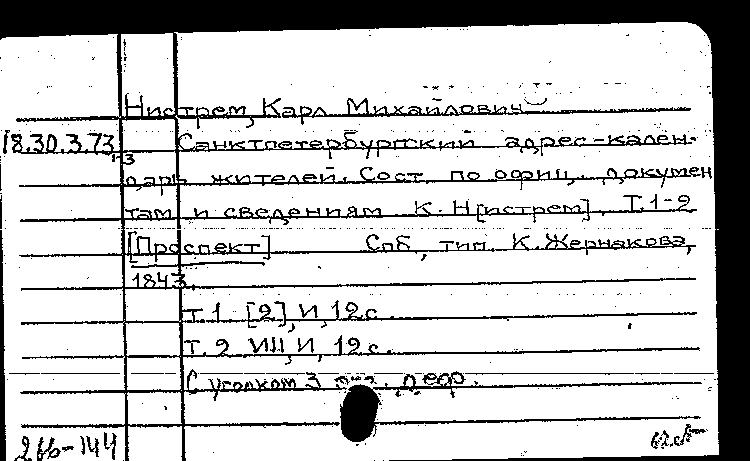 Нистрем, Карл Михайлович
18.30.3.73, Санктпетербургский адрес-кален-
-3
дарь жителей. Сост. по офиц. докумен
там и сведениям К. Н[истрем]. Т.1-2
[Проспект] Спб, тип. К. Жернакова,
1843.
Т.1 [2], И, 12 с.
Т.2 ИЦ, И, 12 с.
С уголком 3
266-144